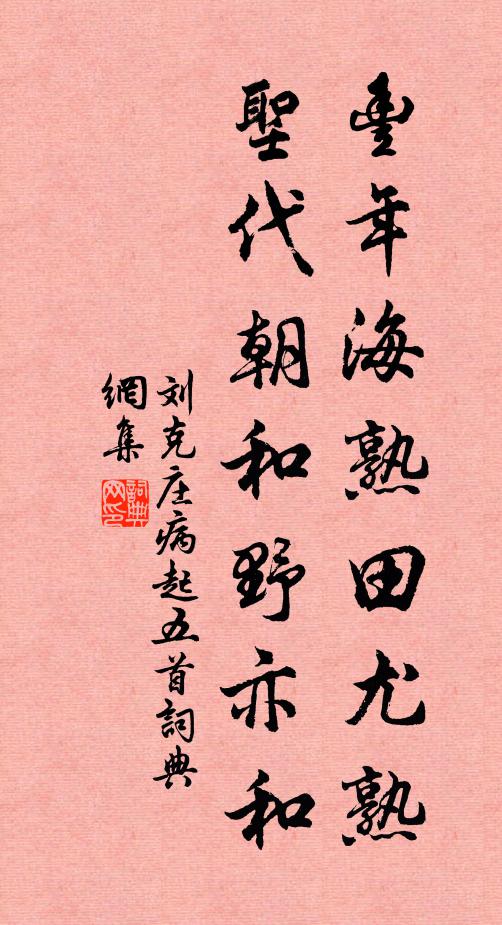 豊年海熟田尤熟
聖代朝和野亦和
刘克庄病起五首詞典
網集
詞典
网印